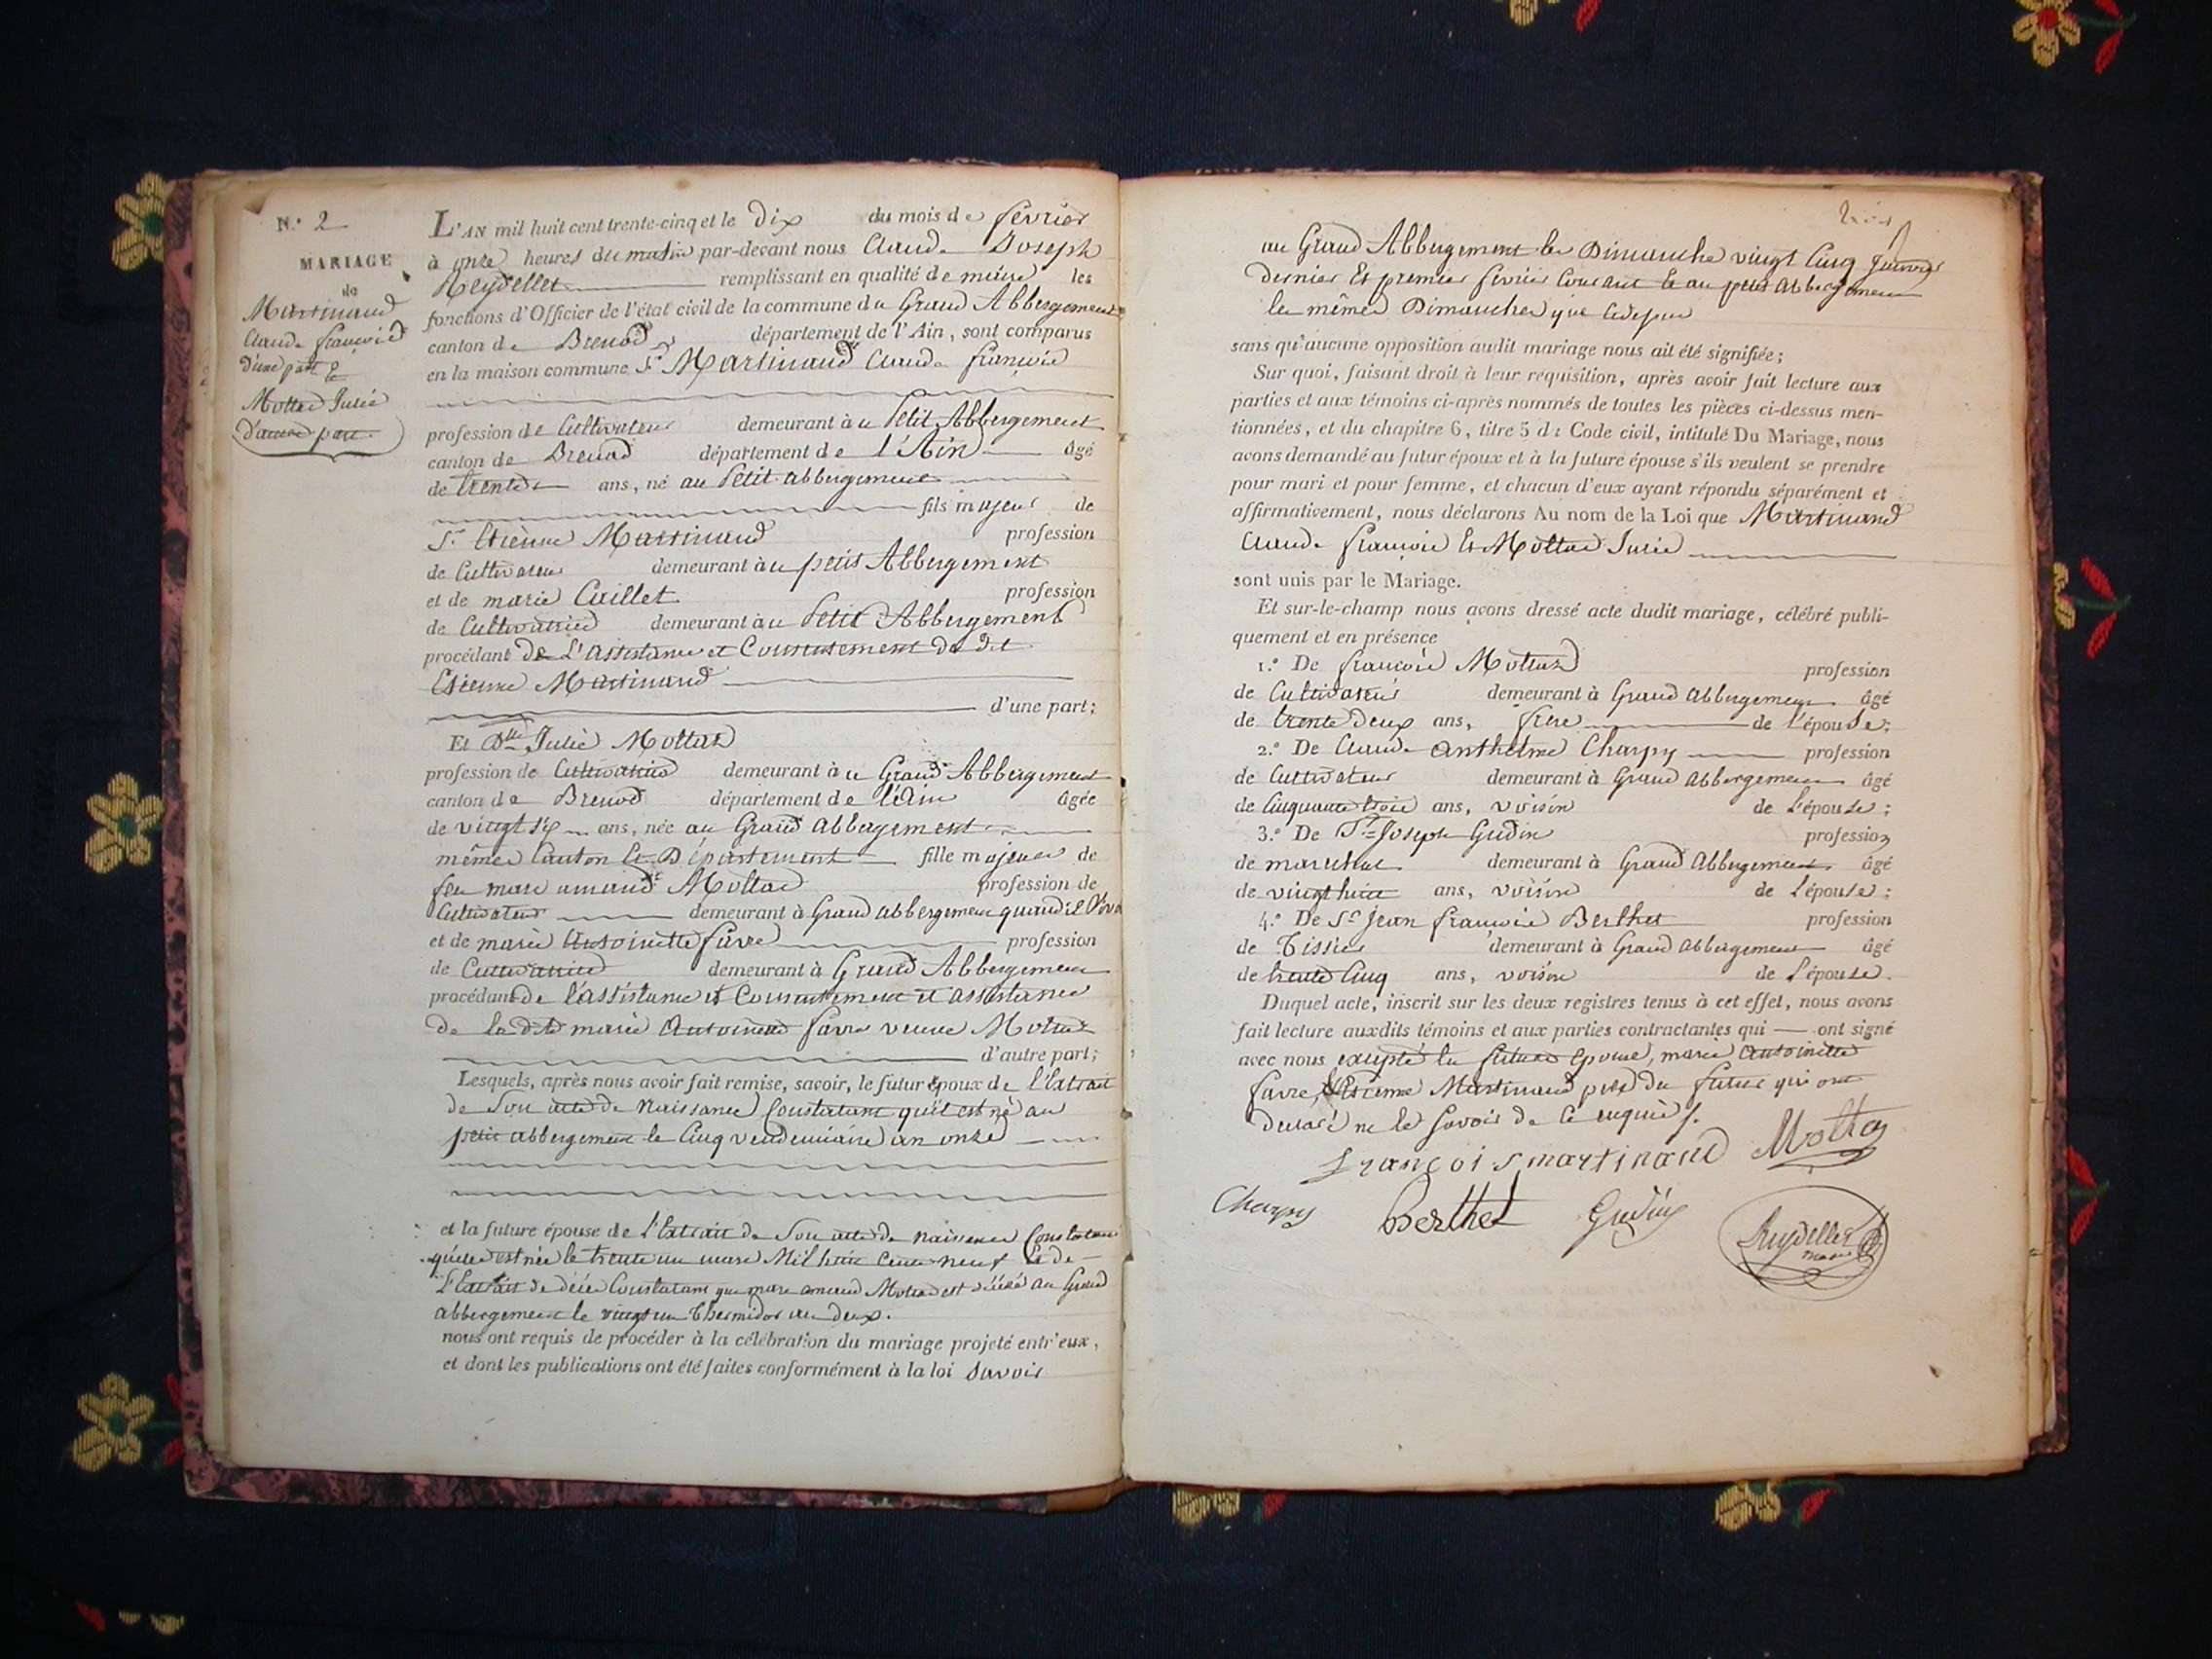 N.° 2
MARIAGE
de
Martinand
Claude françois
d'une part &
Mottaz Julie
d'autre part.
L'AN mil huit cent trente-cinq et le dix du mois de fevrier
à onze heures du matin par-devant nous Claude Joseph
Reydellet remplissant en qualité de maire les
fonctions d'Officier de l'état civil de la commune du Grand Abbergement
canton de Brenod département de l'Ain, sont comparus
en la maison commune Sr Martinand Claude françois
profession de Cultivateur demeurant à u Petit Abbergement
canton de Brenod département de l'Ain âgé
de trente ans, né au Petit abbergement
fils majeur de
Sr Etienne Martinand profession
de Cultivateur demeurant à u petit Abbergement
et de marie Caillet profession
de Cultivatrice demeurant à u Petit Abbergement
procédant de L'assistance et Consentement du dit
Etienne Martinand
d'une part;
Et Dlle Julie Mottaz
profession de Cultivatrice demeurant à u Grand Abbergement
canton de Brenod département de l'Ain âgée
de vingt six ans, née au Grand abbergement
même Canton Et Département fille majeure de
feu marc amand Mottaz profession de
Cultivateur demeurant à Grand abbergement quand il
et de marie Antoinette favre profession
de Cultivatrice demeurant à Grand Abbergement
procédant de l'assistance et Consentement et assistance
de la dite marie Antoinette favre veuve Mottaz
d'autre part;
Lesquels, après nous avoir fait remise, savoir, le futur époux de l'Extrait
de Son acte de Naissance Constatant qu'il est né au
petit abbergement le Cinq vendemiaire an onze
et la future épouse de l'Extrait de Son acte de naissance Constatant
qu'elle est née le trente un mars Mil huit Cent neuf Et de
l'Extrait de décés Constatant que marc amand Mottaz est décédé au Grand
abbergement le vingt un Thermidor an deux.
nous ont requis de procéder à la célébration du mariage projeté entr'eux,
et dont les publications ont été faites conformément à la loi Savoir
au Grand Abbergement les Dimanche vingt Cinq Janvier
dernier Et premier fevrier Courant Et au petit Abbergement
les mêmes Dimanches que
sans qu'aucune opposition audit mariage nous ait été signifiée;
Sur quoi, faisant droit à leur réquisition, après avoir fait lecture aux
parties et aux témoins ci-après nommés de toutes les pièces ci-dessus men-
tionnées, et du chapitre 6, titre 5 du Code civil, intitulé Du Mariage, nous
avons demandé au futur époux et à la future épouse s'ils veulent se prendre
pour mari et pour femme, et chacun d'eux ayant répondu séparément et
affirmativement, nous déclarons Au nom de la Loi que Martinand
Claude françois Et Mottaz Julie
sont unis par le Mariage.
Et sur-le-champ nous avons dressé acte dudit mariage, célébré publi-
quement et en présence
1.° De françois Mottaz profession
de Cultivateur demeurant à Grand abbergement âgé
de trente deux ans, frere de l'épouse;
2.° De Claude anthelme Charpy profession
de Cultivateur demeurant à Grand abbergement âgé
de Cinquante trois ans, voisin de l'épouse;
3.° De Sr Joseph Gudin profession
de marechal demeurant à Grand Abbergement âgé
de vingt huit ans, voisin de l'épouse;
4.° De Sr Jean françois Berthet profession
de Tissier demeurant à Grand abbergement âgé
de trente Cinq ans, voisin de l'épouse.
Duquel acte, inscrit sur les deux registres tenus à cet effet, nous avons
fait lecture auxdits témoins et aux parties contractantes qui — ont signé
avec nous excepté la future epouse, marie Antoinette
favre, Etienne Martinand pere du futur qui ont
declaré ne le Savoir de ce enquis.
françois martinand Mottaz
Charpy Berthet Gudin Reydellet
maire